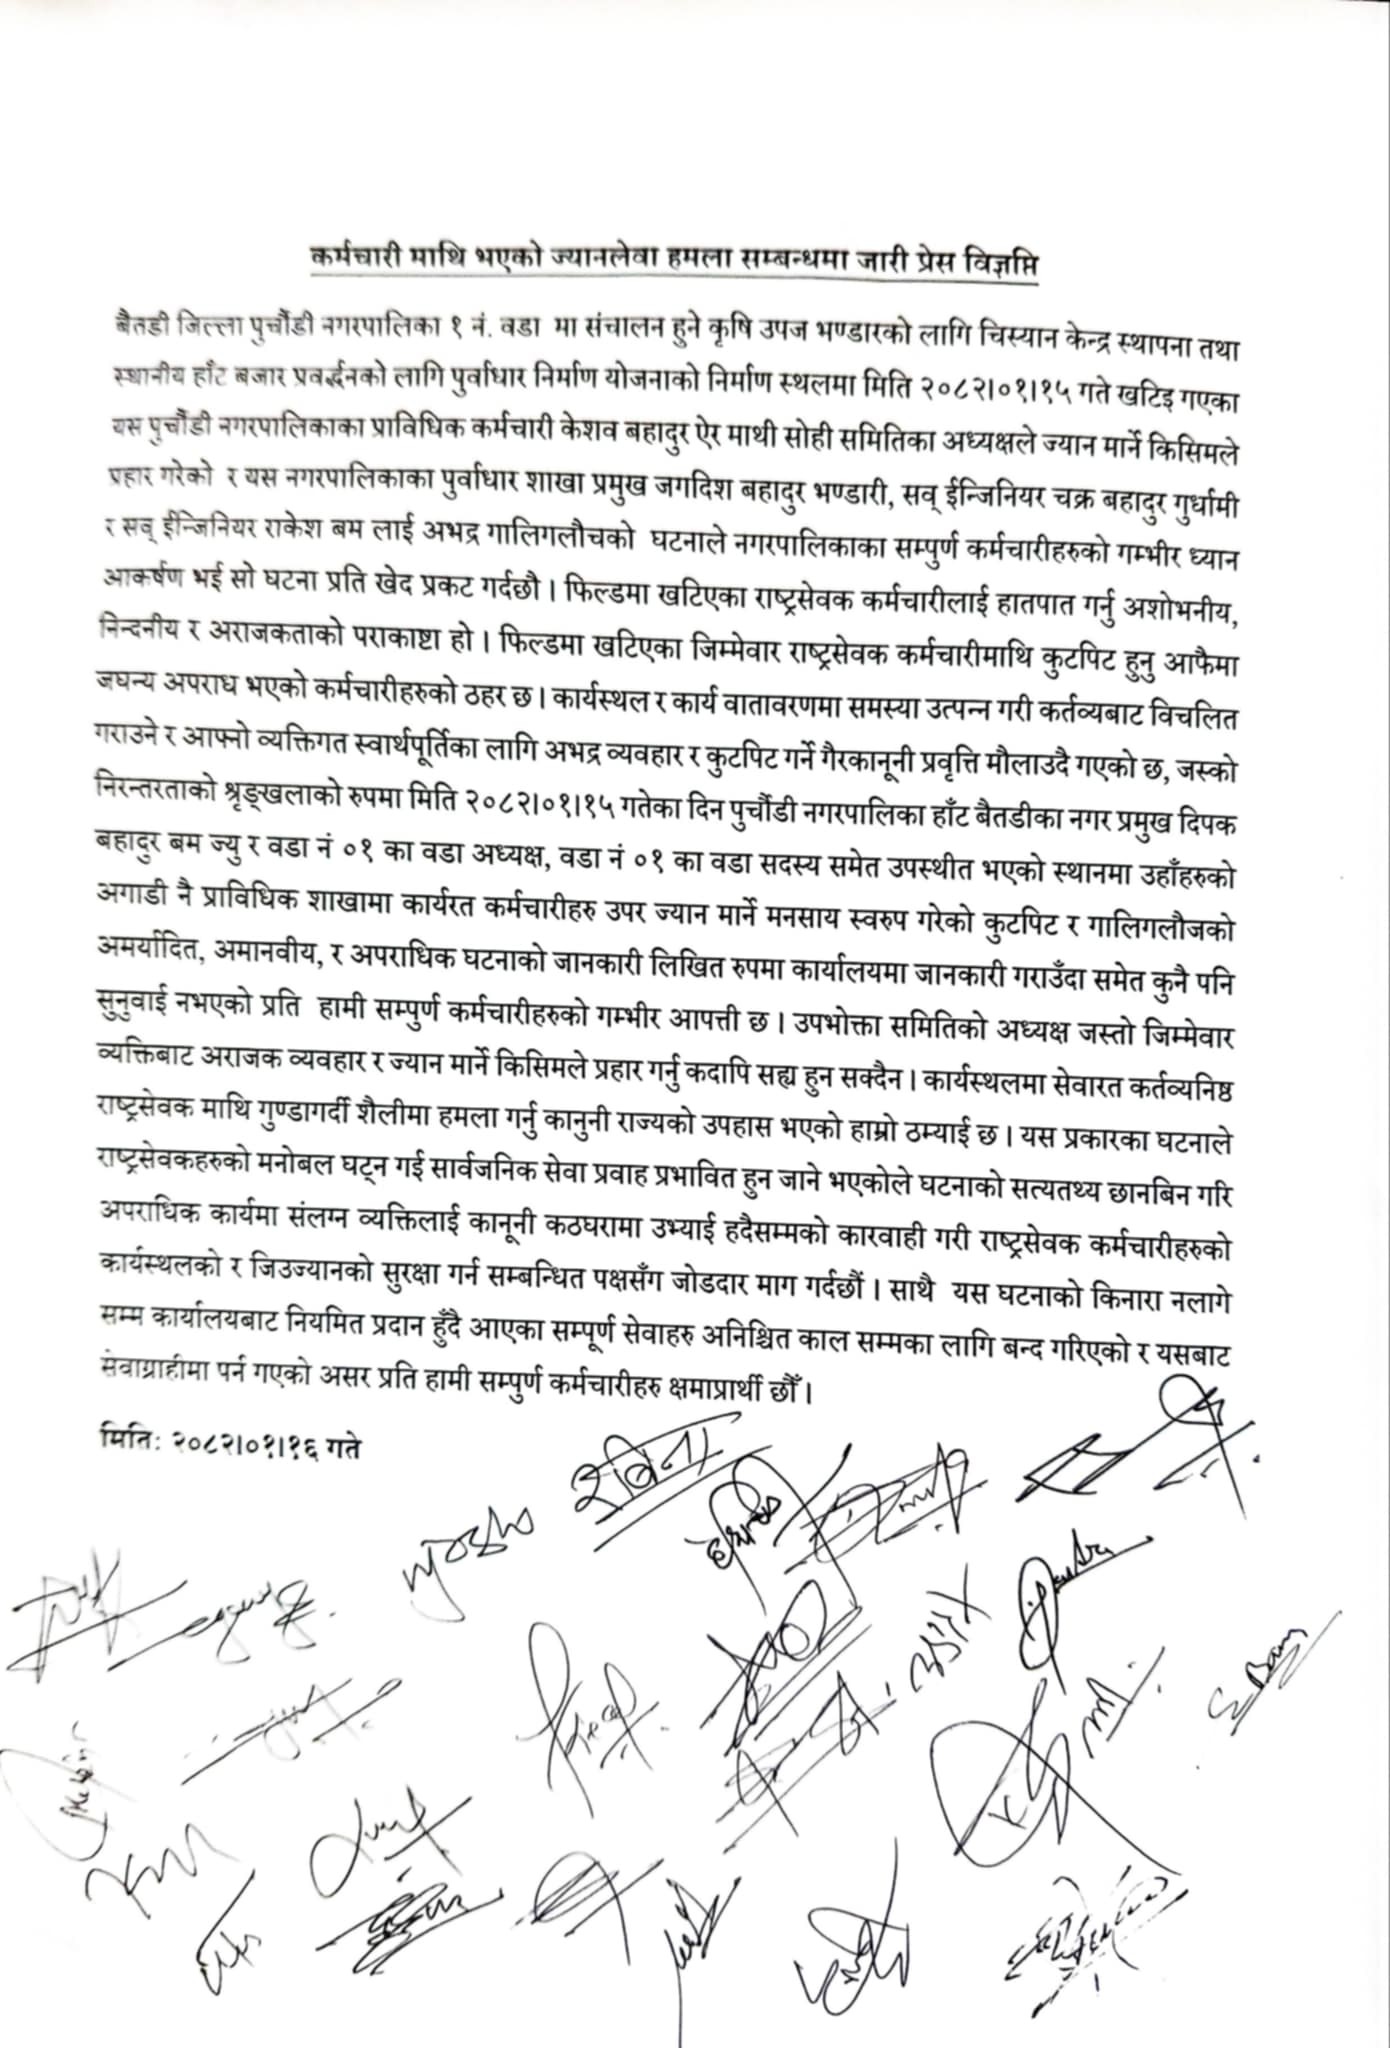 कर्मचारी माथि भएको ज्यानलेवा हमला सम्बन्धमा जारी प्रेस विज्ञप्ति
बैतडी जिल्ला पुर्चौडी नगरपालिका १ नं. वडा मा संचालन हुने कृषि उपज भण्डारको लागि चिस्यान केन्द्र स्थापना तथा
स्थानीय हाँट बजार प्रवर्द्धनको लागि पुर्वाधार निर्माण योजनाको निर्माण स्थलमा मिति २०८२।०१।१५ गते खटिइ गएका
यस पुर्चौडी नगरपालिकाका प्राविधिक कर्मचारी केशव बहादुर ऐर माथी सोही समितिका अध्यक्षले ज्यान मार्ने किसिमले
प्रहार गरेको र यस नगरपालिकाका पुर्वाधार शाखा प्रमुख जगदिश बहादुर भण्डारी, सव् ईन्जिनियर चक्र बहादुर गुर्धामी
र सव् ईन्जिनियर राकेश बम लाई अभद्र गालिगलौचको घटनाले नगरपालिकाका सम्पुर्ण कर्मचारीहरुको गम्भीर ध्यान
आकर्षण भई सो घटना प्रति खेद प्रकट गर्दछौ। फिल्डमा खटिएका राष्ट्रसेवक कर्मचारीलाई हातपात गर्नु अशोभनीय,
निन्दनीय र अराजकताको पराकाष्टा हो। फिल्डमा खटिएका जिम्मेवार राष्ट्रसेवक कर्मचारीमाथि कुटपिट हुनु आफैमा
जघन्य अपराध भएको कर्मचारीहरुको ठहर छ। कार्यस्थल र कार्य वातावरणमा समस्या उत्पन्न गरी कर्तव्यबाट विचलित
गराउने र आफ्नो व्यक्तिगत स्वार्थपूर्तिका लागि अभद्र व्यवहार र कुटपिट गर्ने गैरकानूनी प्रवृत्ति मौलाउदै गएको छ, जस्को
निरन्तरताको श्रृङ्खलाको रुपमा मिति २०८२।०१।१५ गतेका दिन पुर्चौडी नगरपालिका हाँट बैतडीका नगर प्रमुख दिपक
बहादुर बम ज्यु र वडा नं ०१ का वडा अध्यक्ष, वडा नं ०१ का वडा सदस्य समेत उपस्थीत भएको स्थानमा उहाँहरुको
अगाडी नै प्राविधिक शाखामा कार्यरत कर्मचारीहरु उपर ज्यान मार्ने मनसाय स्वरुप गरेको कुटपिट र गालिगलौजको
अमर्यादित, अमानवीय, र अपराधिक घटनाको जानकारी लिखित रुपमा कार्यालयमा जानकारी गराउँदा समेत कुनै पनि
सुनुवाई नभएको प्रति हामी सम्पुर्ण कर्मचारीहरुको गम्भीर आपत्ती छ। उपभोक्ता समितिको अध्यक्ष जस्तो जिम्मेवार
व्यक्तिबाट अराजक व्यवहार र ज्यान मार्ने किसिमले प्रहार गर्नु कदापि सह्य हुन सक्दैन। कार्यस्थलमा सेवारत कर्तव्यनिष्ठ
राष्ट्रसेवक माथि गुण्डागर्दी शैलीमा हमला गर्नु कानुनी राज्यको उपहास भएको हाम्रो ठम्याई छ। यस प्रकारका घटनाले
राष्ट्रसेवकहरुको मनोबल घट्न गई सार्वजनिक सेवा प्रवाह प्रभावित हुन जाने भएकोले घटनाको सत्यतथ्य छानबिन गरि
अपराधिक कार्यमा संलग्न व्यक्तिलाई कानूनी कठघरामा उभ्याई हदैसम्मको कारवाही गरी राष्ट्रसेवक कर्मचारीहरुको
कार्यस्थलको र जिउज्यानको सुरक्षा गर्न सम्बन्धित पक्षसँग जोडदार माग गर्दछौं। साथै यस घटनाको किनारा नलागे
सम्म कार्यालयबाट नियमित प्रदान हुँदै आएका सम्पूर्ण सेवाहरु अनिश्चित काल सम्मका लागि बन्द गरिएको र यसबाट
सेवाग्राहीमा पर्न गएको असर प्रति हामी सम्पुर्ण कर्मचारीहरु क्षमाप्रार्थी छौँ।
मितिः २०८२।०१।१६ गते
रबिता